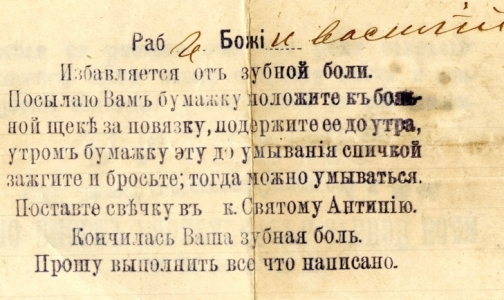 Раб ъ Божій Василій
Избавляется отъ зубной боли.
Посылаю Вамъ бумажку положите къ боль-
ной щекѣ за повязку, подержите ее до утра,
утромъ бумажку эту до умыванія спичкой
зажгите и бросьте; тогда можно умываться.
Поставте свѣчку въ к. Святому Антипію.
Кончилась Ваша зубная боль.
Прошу выполнить все что написано.